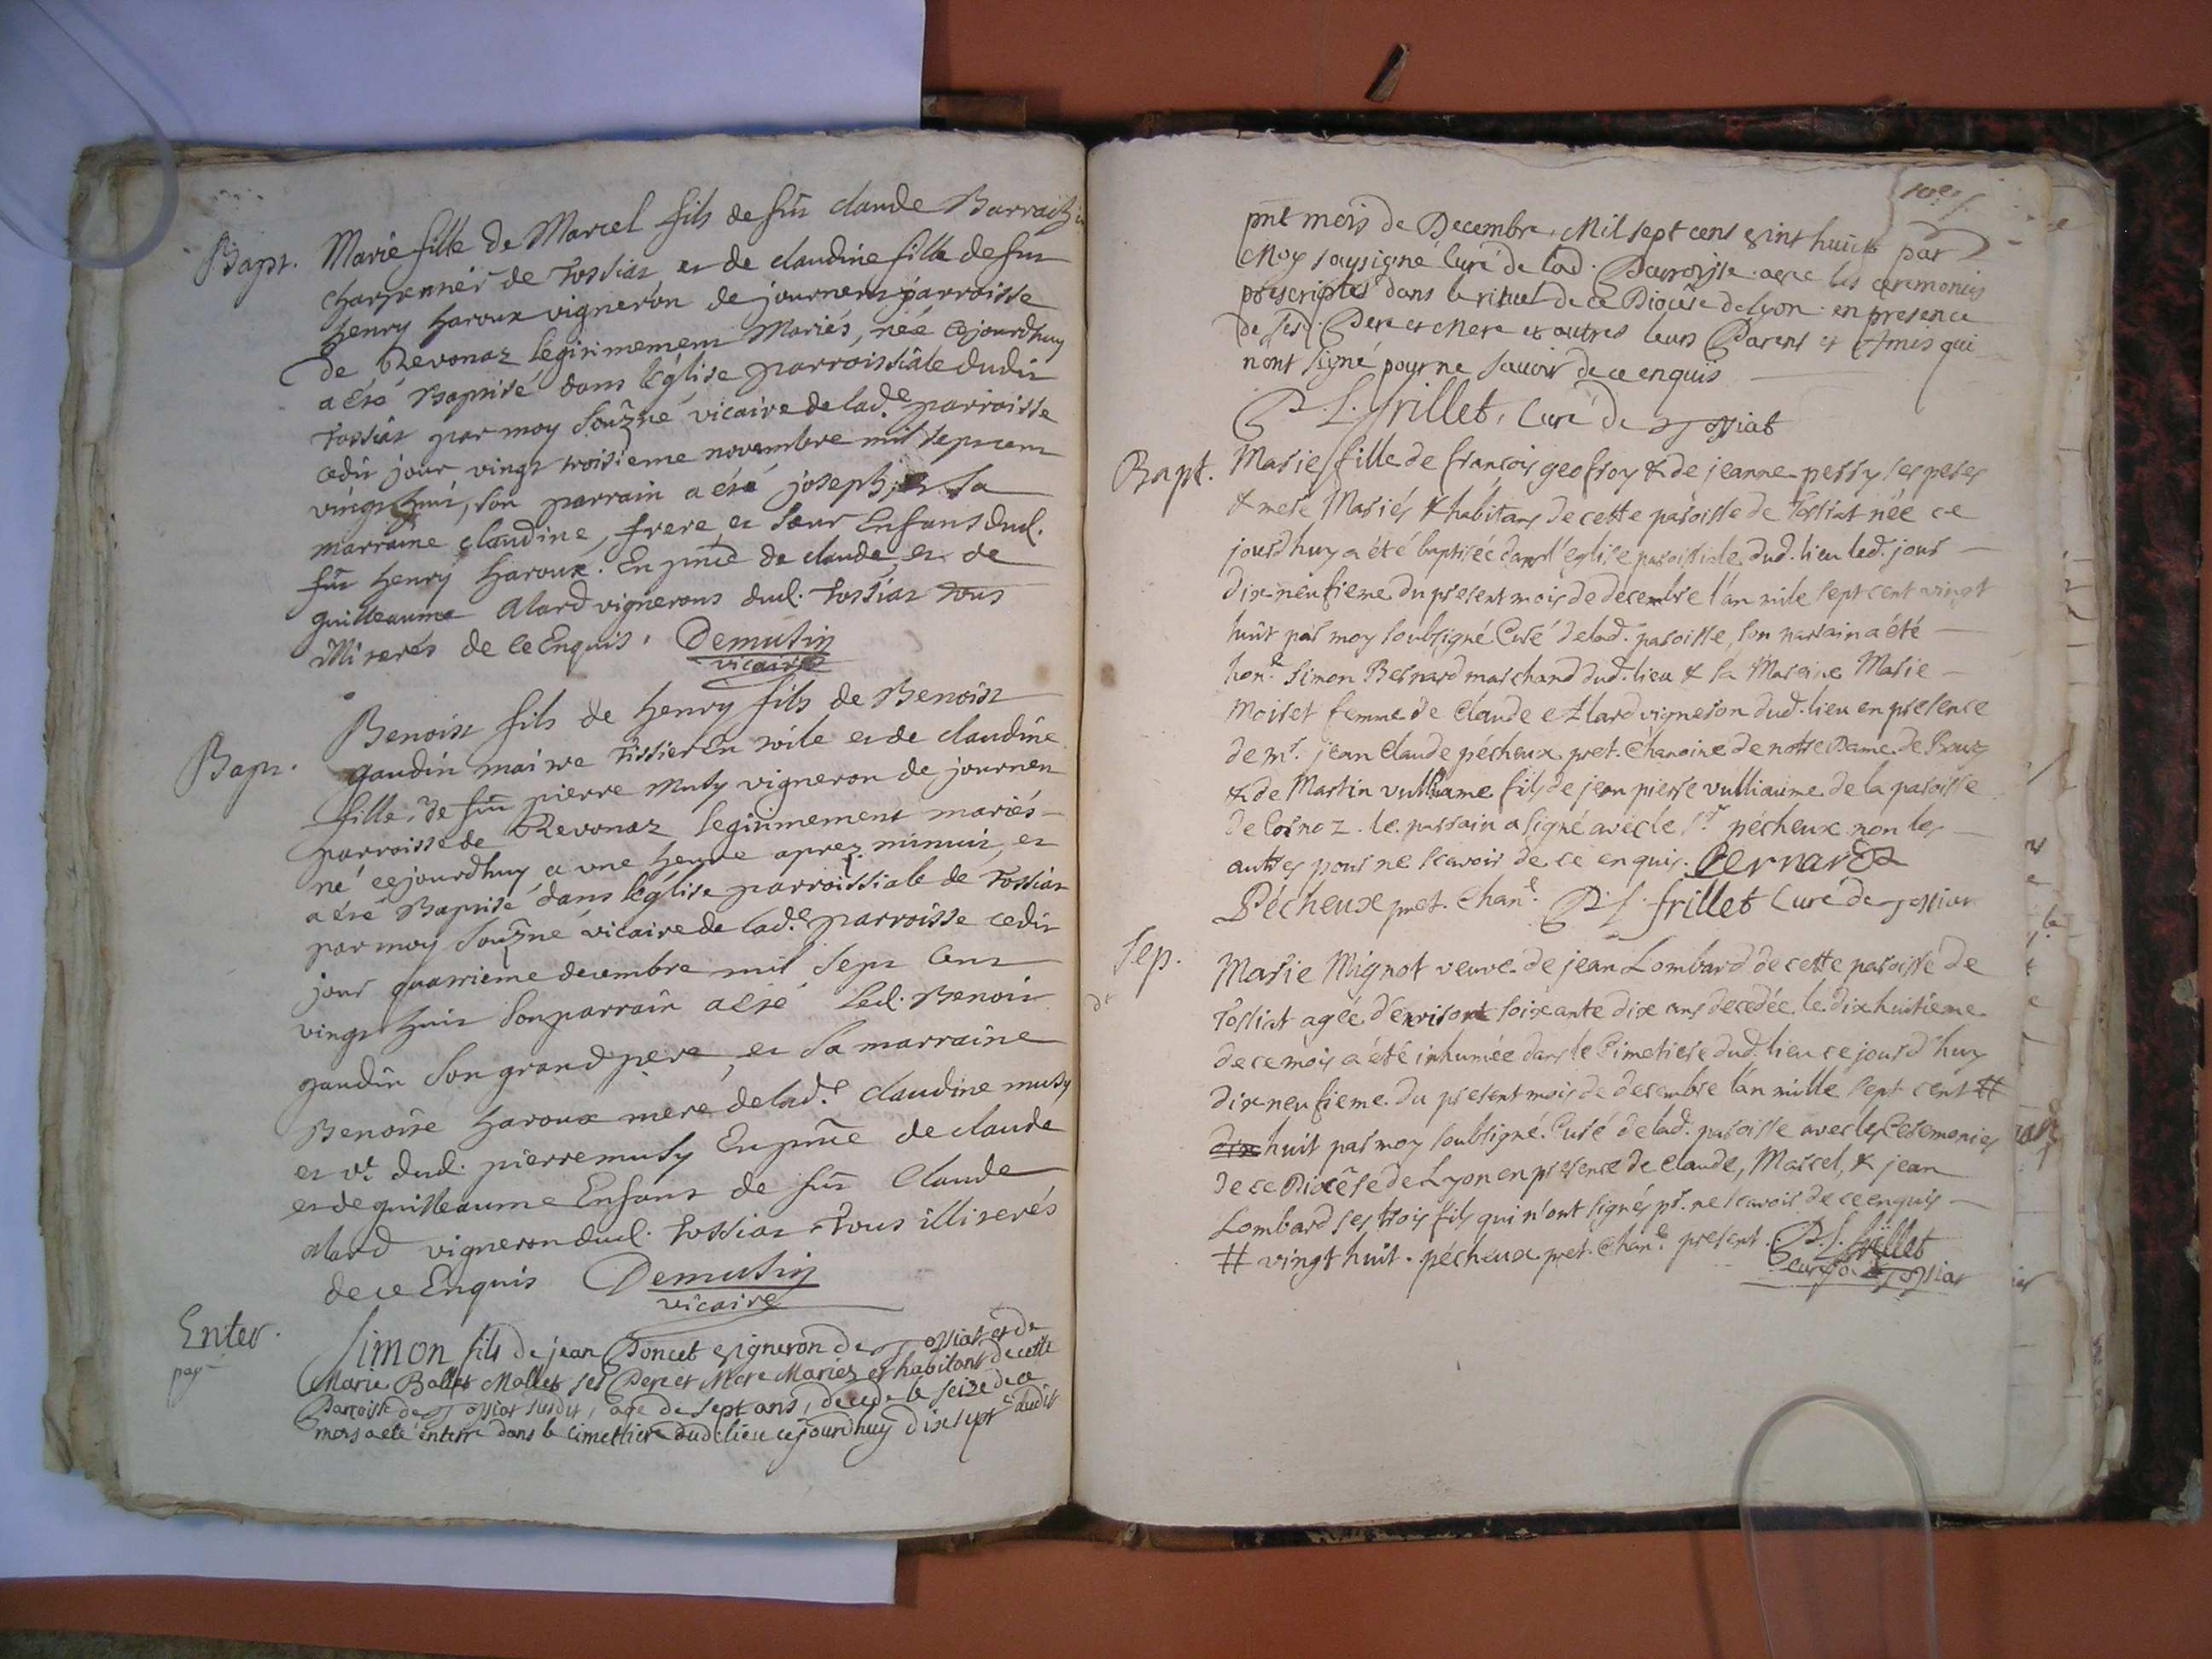 Bapt. Marie fille de Marcel fils de fût claude Barrachin
charpentier de Tossiat et de claudine fille de fût
henry haroux vigneron de journens parroisse
de Revonaz legitimement Mariés, née cejourdhuy
a été Baptisé dans l'église parroissiale dudit
Tossiat par moy soûz.né vicaire de lad.e parroisse
cedit jour vingt troisieme novembre mil sept cent
vingt huit, son parrain a été joseph, et sa
marraine claudine, frere et sœur Enfans dud.
fût henry haroux. En pnce de claude, et de
guilleaume Alard vignerons dud. Tossiat tous
illiterés de ce Enquis. Demusin
vicaire
Benoist fils de henry fils de Benoist
Bapt. gaudin maitre Tissier En toile et de claudine
fille de fût pierre Musy vigneron de journen
parroisse de Revonaz legitimement mariés
né cejourdhuy a une heure aprez minuit, et
a été Baptisé dans l'église parroissiale de Tossiat
par moy soûz.né vicaire de lad.e parroisse cedit
jour quatrieme decembre mil sept cent
vingt huit son parrain a été led. Benoit
gaudin son grand pere, et sa marraine
Benoite haroux mere de lad.e claudine musy
et v.e dud. pierre musy En pnce de claude
et de guilleaume Enfans de fût Claude
Alard vigneron dud. Tossiat tous illiterés
de ce Enquis Demusin
vicaire
Enter. Simon fils de jean Poncet vigneron de Tossiat et de
payé Marie Ballet Mollet ses Pere et Mere Mariez et habitans de cette
Parroisse de Tossiat susdit, agé de sept ans, decedé le seize de ce
mois a eté enterré dans le cimettiere dud. lieu cejourdhuy dix sept dudit
pnt mois de Decembre, Mil sept cent vint huict par
Moy soussigné Curé de lad. Parroisse avec les ceremonies
prescriptes dans le rituel de ce Diocese de Lyon en presence
de sesd. Pere et Mere et autres leurs Parens et Amis qui
n'ont signé pour ne savoir de ce enquis
P. L. frillet, Curé de Tossiat
Bapt. Marie fille de françois geofroy & de jeanne perry ses peres
& mere Mariés & habitans de cette paroisse de Tossiat née ce
jourdhuy a été baptisée dans l'eglise paroissiale dud. lieu led. jour
dix neufieme du present mois de decembre l'an mile sept cent vingt
huit par moy soubsigné Curé de lad. paroisse, son parrain a été
hon.e Simon Bernard marchand dud. lieu & sa Maraine Marie
Moiret femme de Claude Allard vigneron dud. lieu en presence
de m.r jean Claude pécheux pret. Chanoine de notre Dame de Bourg
& de Martin vulliame fils de jean pierre vulliaume de la paroisse
de Cornoz. le parrain a signé avec le S.r pécheux non les
autres pour ne scavoir de ce enquis. Bernard
Pécheux pret. Chan.e P. L. frillet Curé de Tossiat
Sep. Marie Mignot veuve de jean Lombard de cette paroisse de
Tossiat agée d'environt soixante dix ans decedée le dix huitieme
de ce mois a été inhumée dans le Cimetiere dud. lieu ce jourd'huy
dix neufieme du present mois de decembre l'an mille sept cent #
dix huit par moy soubsigné Curé de lad. paroisse avec les Ceremonies
de ce Diocése de Lyon en presence de Claude, Marcel, & jean
Lombard ses trois fils qui n'ont signés pr. ne scavoir de ce enquis
# vingt huit. pécheux pret. Chan.e present. P. L. frillet
curé de Tossiat